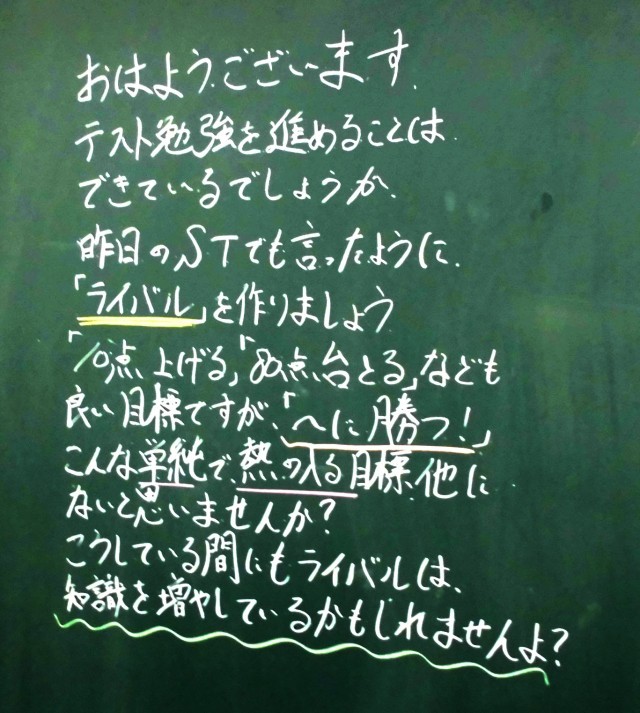 おはようございます.
テスト勉強を進めることは
できているでしょうか.
昨日のSTでも言ったように.
「ライバル」を作りましょう
「10点上げる」「80点台とる」なども
良い目標ですが、「〜に勝つ!」
こんな単純で、熱の入る目標、他に
ないと思いませんか?
こうしている間にもライバルは、
知識を増やしているかもしれませんよ?